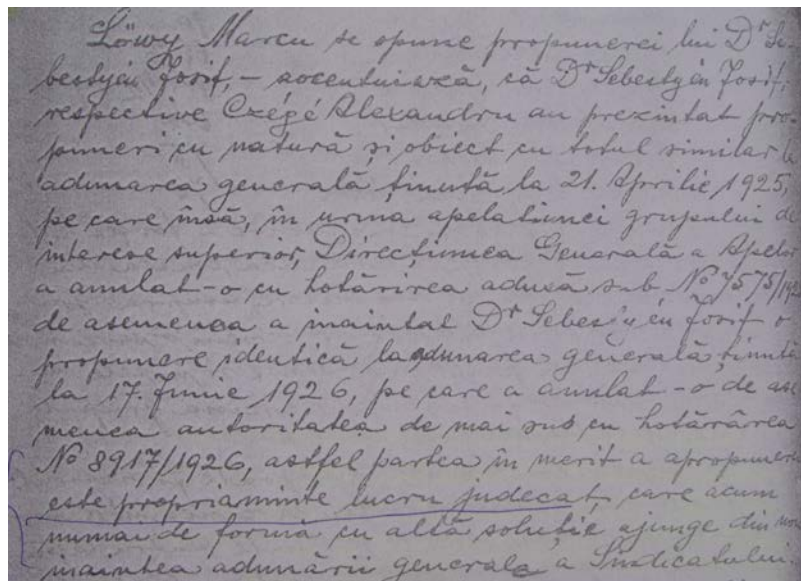 Löwy Marcu se opune propunerei lui Dr Se-
bestyén Josif, – accentuiază, că Dr Sebestyén Josif,
respective Czégé Alexandru au prezintat pro-
puneri cu natură și obiect cu totul similar la
adunarea generală ținută la 21. Aprilie 1925,
pe care însă, în urma apelațiunei grupului de
interese superior, Direcțiunea Generală a Apelor
a anulat-o cu hotărîrea adusă sub No 7575/192
de asemenea a inaintat Dr Sebestyén Josif o
propunere identică la adunarea generală ținută
la 17. Junie 1926, pe care a anulat-o de ase
menea autoritatea de mai sus cu hotărârea
No 8917/1926, astfel partea în merit a apropunerei
este propriaminte lucru judecat, care acum
numai de formă cu altă soluție ajunge din nou
inaintea adunării generale a Sindicatului